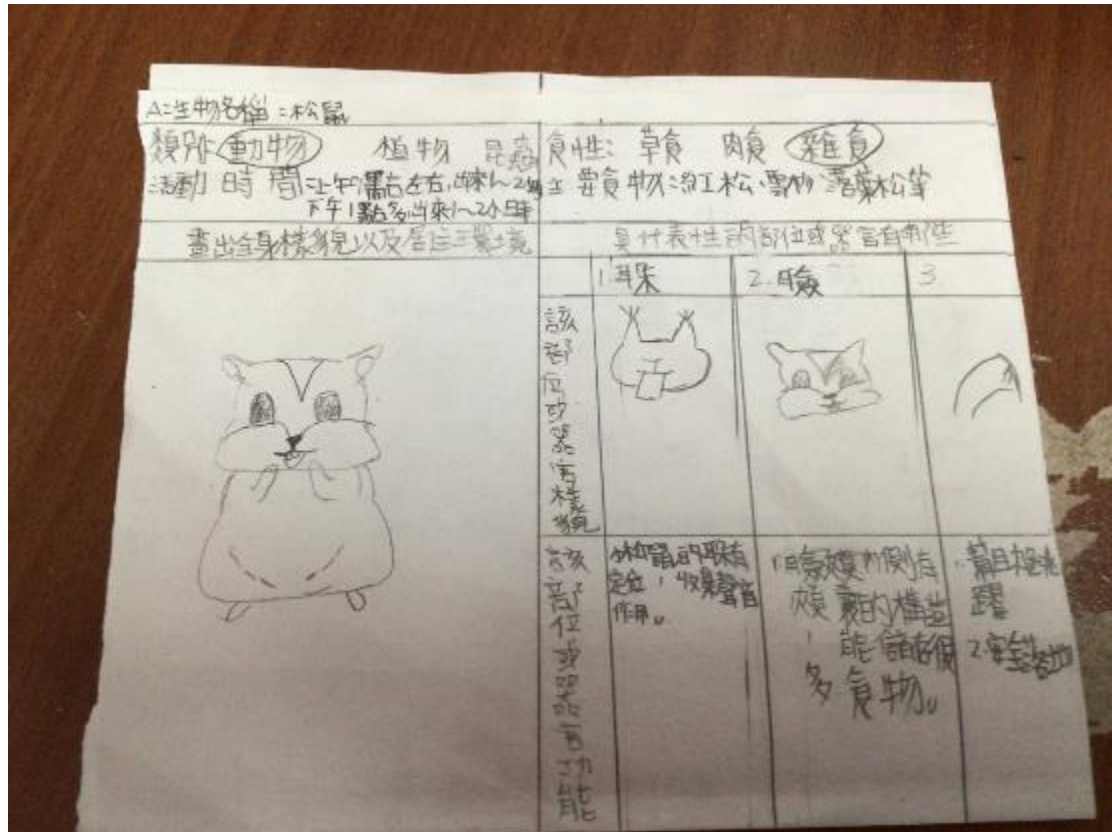 A=生物名稱=松鼠
類別: 動物 植物 昆蟲
食性: 草食 肉食 雜食
活動時間=上午 點左右,出來1~2小時
下午1點多出來1~2小時
主要食物:紅松、雲杉 落葉松等
畫出全身樣貌以及居住環境
具代表性的部位或器官有哪些
1.耳朵
2.臉
3.
該部位或器官樣貌
該部位或器官功能
松鼠的耳朵有
定位,收集聲音
作用。
1.臉頰內側有
頰囊的構造
,能儲存很
多食物。
跳
躍
2.安全著地